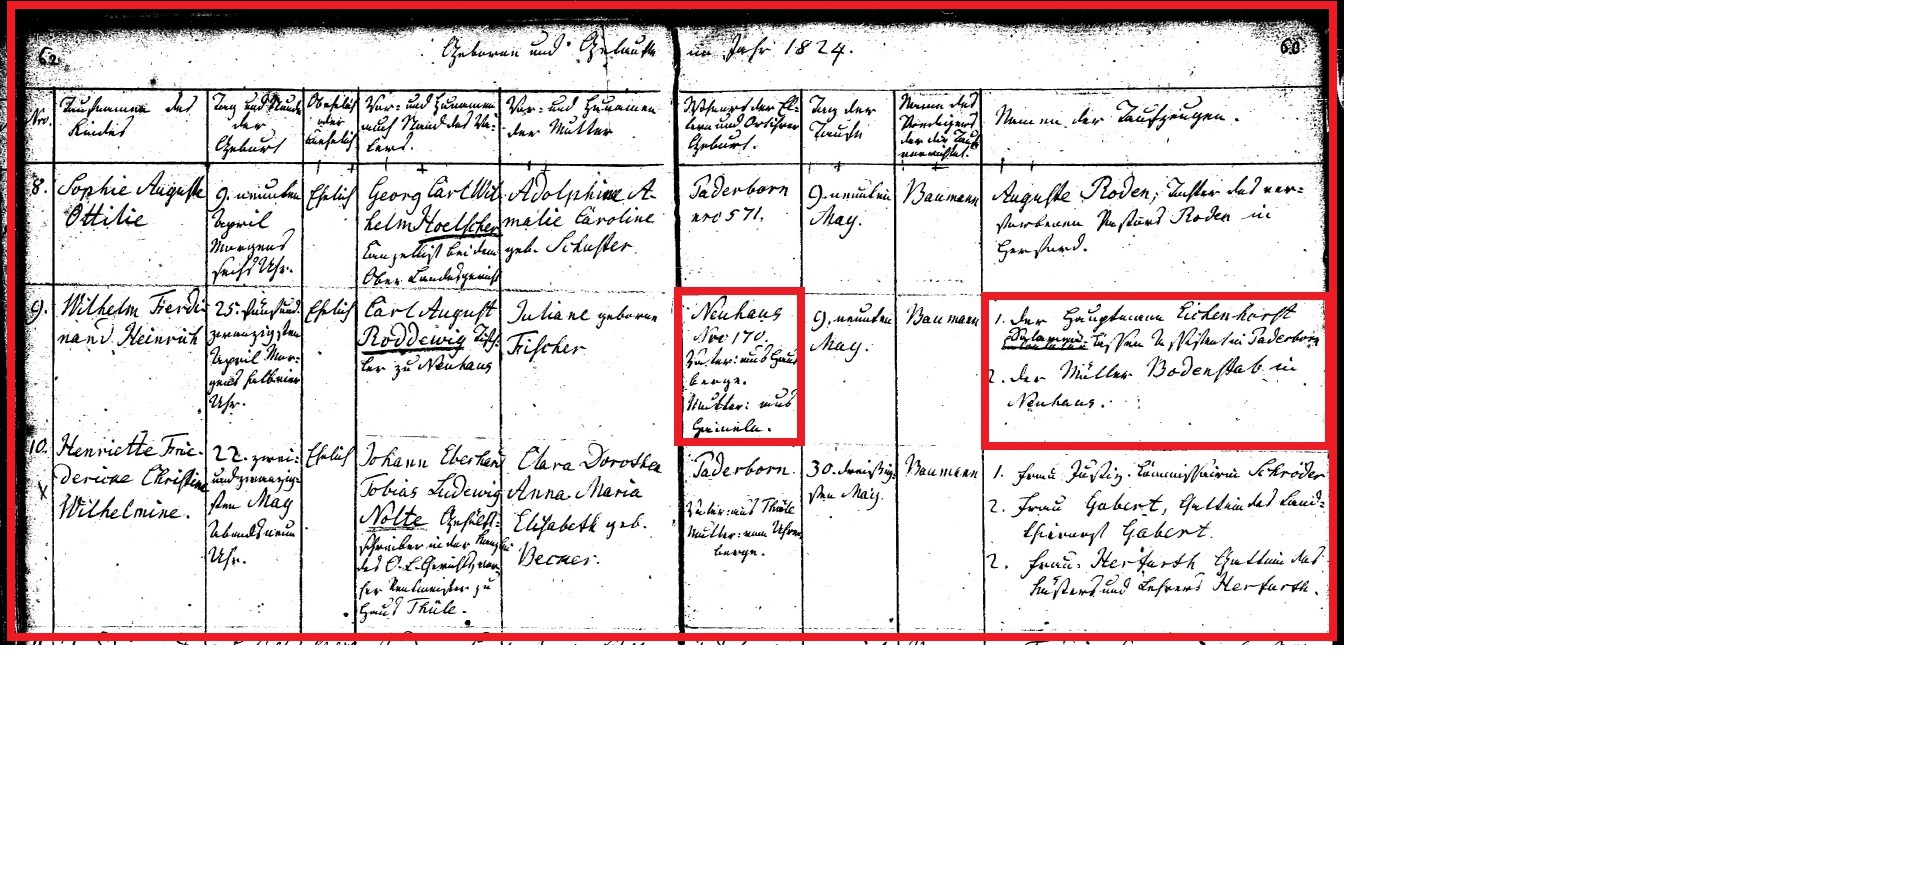 62
Geborne und Getaufte im Jahr 1824.
63
Nro.
Taufnamen des
Kindes
Tag und Stunde
der
Geburt
Ob ehelich
oder
unehelich
Vor- und Zunamen
auch Stand des Va-
ters.
Vor- und Zunamen
der Mutter
Wohnort der El-
tern und Ort ihrer
Geburt.
Tag der
Taufe
Name des
Predigers
der die Taufe
verrichtet.
Namen der Taufzeugen.
8.
Sophie Auguste
Ottilie
9. neunten
April
Morgens
sechs Uhr.
Ehelich
Georg Carl Wil
helm Hoelscher
Canzellist bei dem
Ober Landesgericht
Adolphine A-
malie Caroline
geb. Schuster.
Paderborn
nro 571.
9. neunten
May.
Baumann
Auguste Roden, Tochter des ver-
storbenen Pastors Roden in
Herford.
9.
Wilhelm Ferdi-
nand Heinrich
25. fünfund
zwanzigsten
April Mor-
gens halbvier
Uhr.
Ehelich
Carl August
Roddewig Tisch-
ler zu Neuhaus
Juliane geborne
Fischer
Neuhaus
Nro 170.
Vater: aus Haus
berge.
Mutter: aus
9. neunten
May.
Baumann
1. der Hauptmann Eickenhorst
Assistent in Paderborn
2. der Müller Bodenstab in
Neuhaus.
10.
Henriette Frie-
dericke Christine
Wilhelmine.
22. zwei-
undzwanzig-
sten May
Abends neun
Uhr.
Ehelich
Johann Eberhard
Tobias Ludewig
Nolte Gehülfs-
schreiber in der Kanzlei
des O. L. Gerichts vor-
her Rentmeister zu
Haus Thüle.
Clara Dorothea
Anna Maria
Elisabeth geb.
Becker.
Paderborn.
Vater: aus Thüle
Mutter: vom
berge.
30. dreißig-
sten May.
Baumann
1. Frau Justiz-Commissairin Schröder
2. Frau Gabert, Gattin des Land-
thierarzt Gabert.
2. Frau Herfurth Gattin des
Küsters und Lehrers Herfurth.